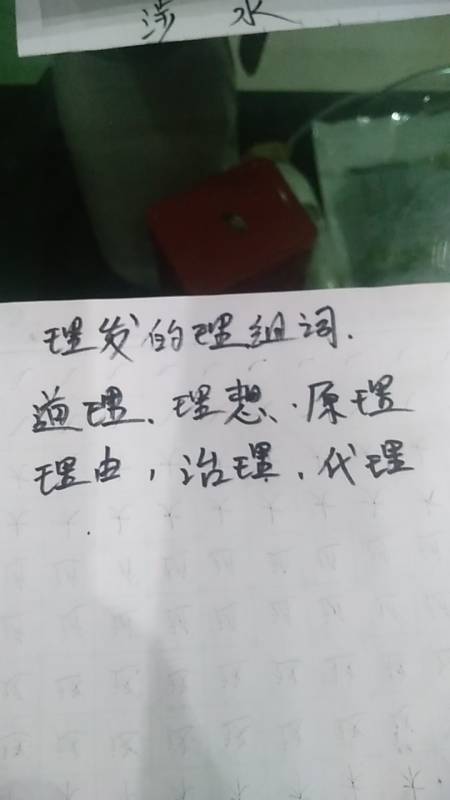 涉 水
理发的理组词.
道理、理想、原理
理由，治理、代理